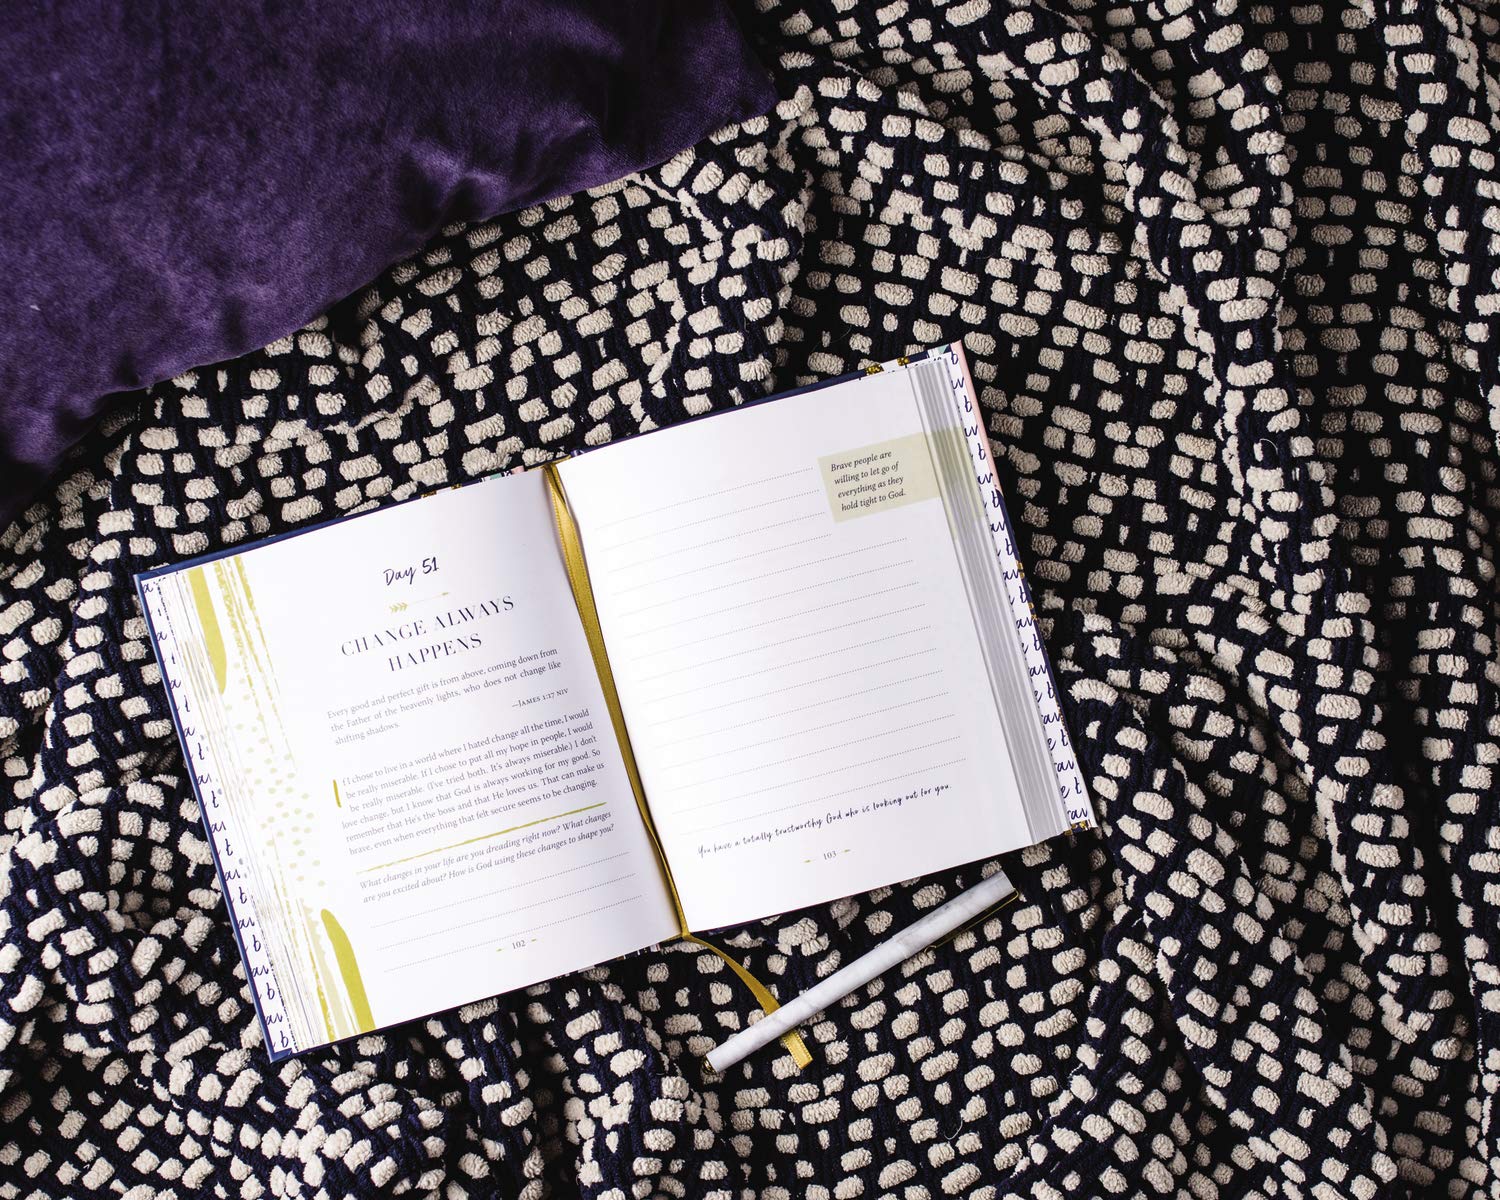 Day 51
CHANGE ALWAYS
HAPPENS
Every good and perfect gift is from above, coming down from
the Father of the heavenly lights, who does not change like
shifting shadows.
—JAMES 1:17 NIV
If I chose to live in a world where I hated change all the time, I would
be really miserable. If I chose to put all my hope in people, I would
be really miserable. (I've tried both. It's always miserable.) I don't
love change, but I know that God is always working for my good. So
remember that He's the boss and that He loves us. That can make us
brave, even when everything that felt secure seems to be changing.
What changes in your life are you dreading right now? What changes
are you excited about? How is God using these changes to shape you?
102
Brave people are
willing to let go of
everything as they
hold tight to God.
You have a totally trustworthy God who is looking out for you.
103